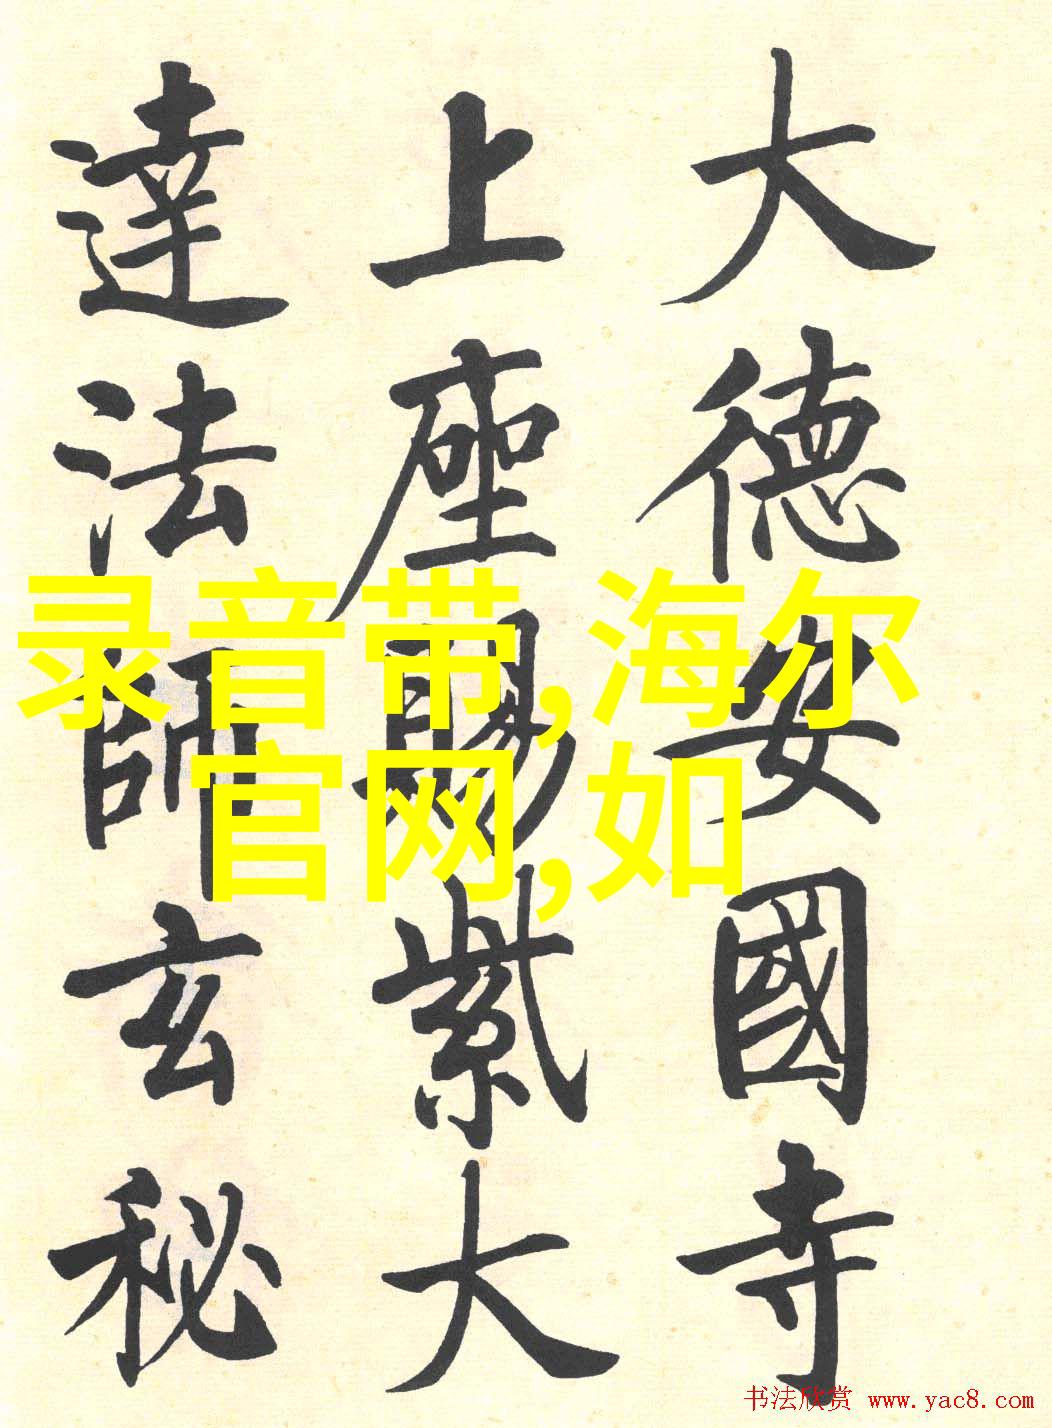 大德安國寺
上座賜紫大
達法師玄秘
录音带,海尔
官网,如
书法欣赏 www.yac8.com